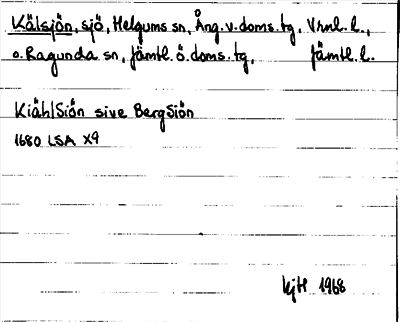 Kälsjön, sjö, Helgums sn, Ång. v. doms. tg, Vrnl. l.,
o. Ragunda sn, Jämtl. ö. doms. tg, Jämtl. l.
Kiähl Siön sive Berg Siön
1680 LSA X9
KjH 1968